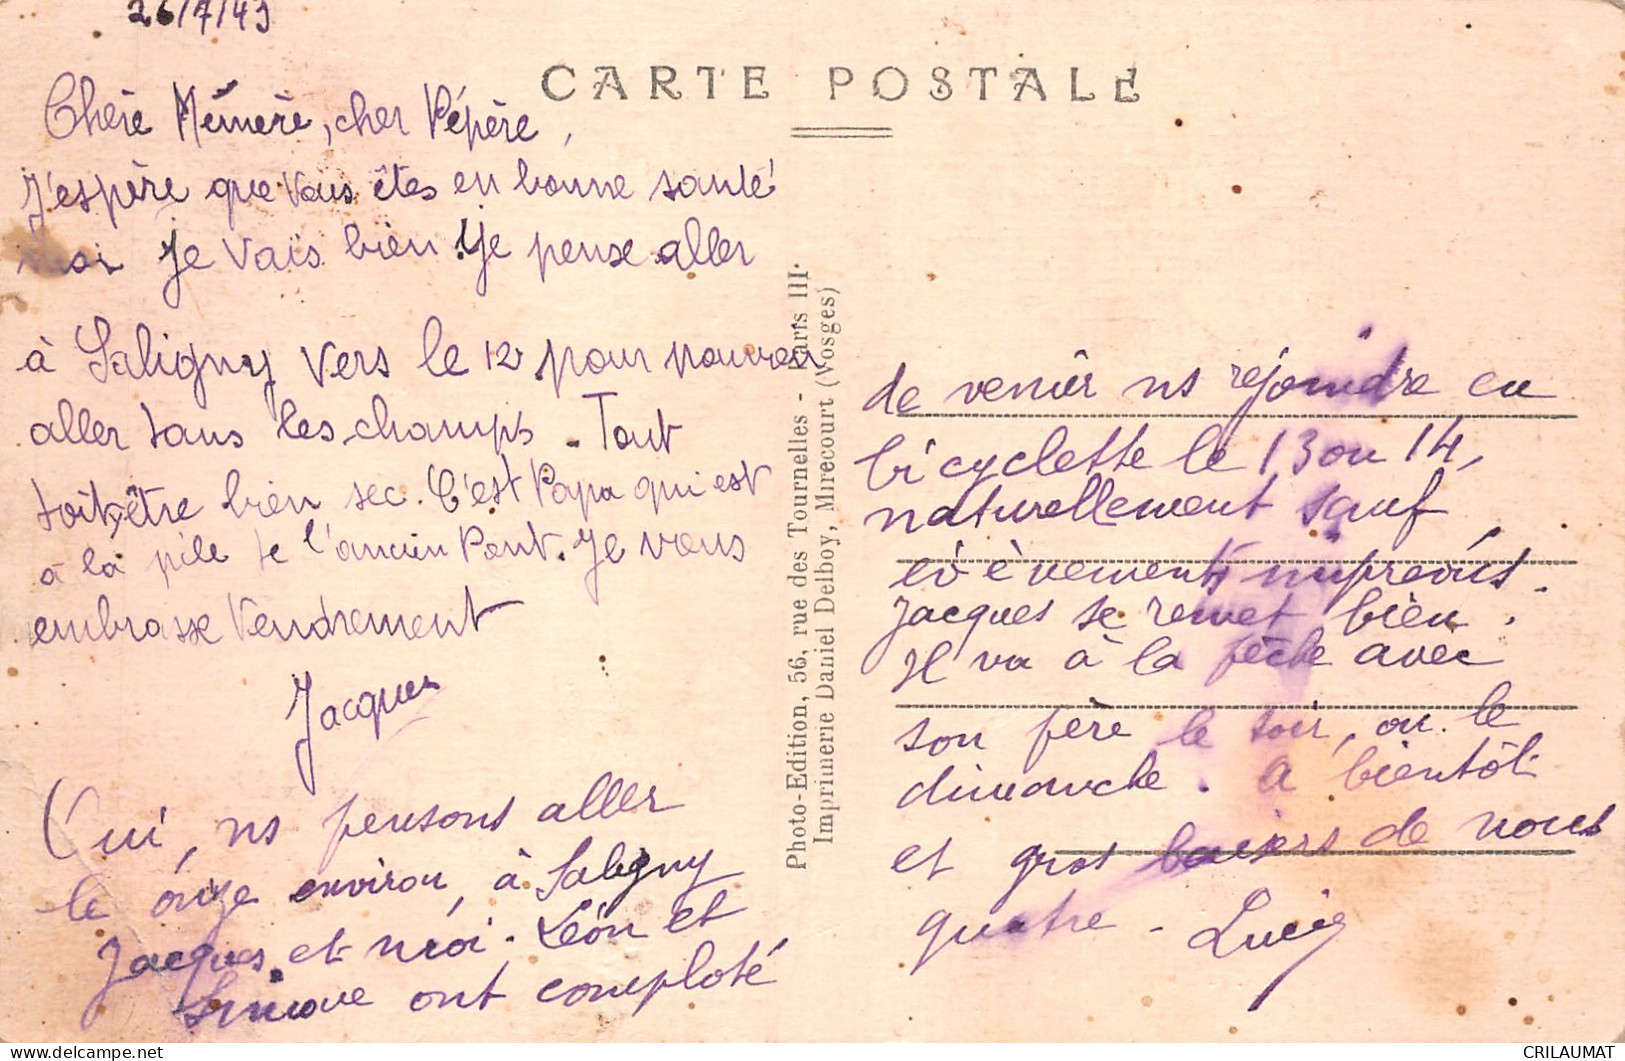 26/7/43
CARTE POSTALE
Chère Mémère, cher Pépère,
J'espère que vous êtes en bonne santé
moi je vais bien. Je pense aller
à Saligny vers le 12 pour pouvoir
aller dans les champs. Tout
doit être bien sec. C'est Papa qui est
à la pile de l'ancien Pont. Je vous
embrasse tendrement
Jacques
Oui, ns pensons aller
le onze environ, à Saligny
Jacques et moi. Léon et
Simone ont comploté
Photo-Edition, 56, rue des Tournelles - Paris III.
Imprimerie Daniel Delboy, Mirecourt (Vosges)
de venir ns rejoindre en
bicyclette le 13 ou 14,
naturellement sauf
évènements imprévus.
Jacques se remet bien.
Il va à la pêche avec
son père le soir, ou le
dimanche. A bientôt
et gros baisers de nous
quatre - Lucie
CRILAUMAT